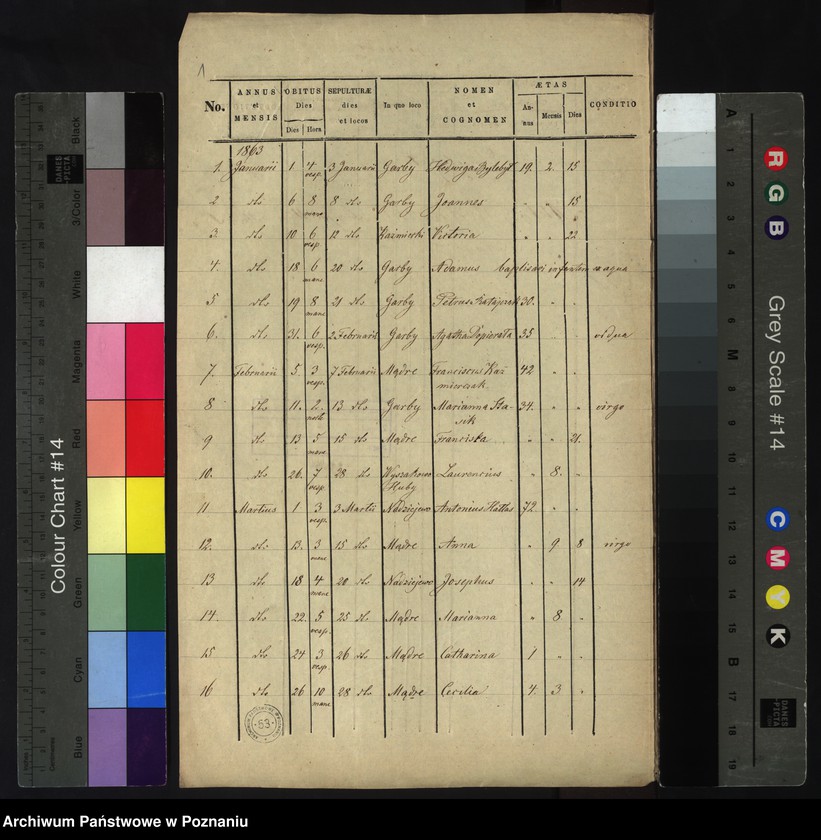 1
No.
ANNUS et MENSIS
OBITUS Dies
Dies Hora
SEPULTURÆ dies et locos
In quo loco
NOMEN et COGNOMEN
ÆTAS
An-nus Mensis Dies
CONDITIO
1863
1. Januarii 1 4 vesp. 3 Januarii Garby Hedwiga 19. 2. 15
2 dto 6 8 mane 8 dto Garby Joannes " " 15
3. dto 10 6 vesp. 12 dto Kaźmierki Victoria " " 22
4. dto 18 6 mane 20 dto Garby Adamus baptisari infantem ex aqua
5 dto 19 8 mane 21 dto Garby Petrus Ratajczak 30. " "
6. dto 31. 6 vesp. 2 Februarii Garby Agatha Popierata 35 " " vidua
7. Februarii 5. 3 vesp. 7 Februarii Mądre Franciscus Kaź
mierczak. 42 " "
8 dto 11. 2. 13 dto Garby Marianna Sta-
sik 34. " " virgo
9 dto 13 5 mane 15 dto Mądre Franciska " " 21.
10. dto 26. 7 vesp. 28 dto Huby Laurencius " 8. "
11 Martius 1 3 vesp. 3 Martii Nadziejewo Antonius Hattas 72 " "
12. dto 13. 3 mane 15 dto Mądre Anna " 9 8 virgo
13 dto 18 4 mane 20 dto Nadziejewo Josephus " " 14
14. dto 22. 5 vesp. 25 dto Mądre Marianna " 8 "
15 dto 24 3 vesp 26 dto Mądre Catharina 1 " "
16 dto 26 10 mane 28 dto Mądre Cecilia 4. 3 "
53
Colour Chart #14
Blue Cyan Green Yellow Red Magenta White 3/Color Black
DANES PICTA
Grey Scale #14
R G B C M Y K
A 1 2 3 4 5 6 M 8 9 10 11 12 13 14 15 B 17 18 19
DANES PICTA
Archiwum Państwowe w Poznaniu